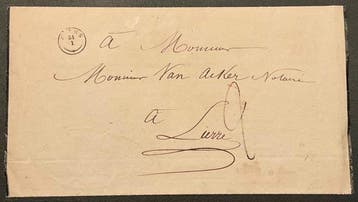 24
1
à Monsieur
Monsieur Van Acker Notaire
à
Lierre
2